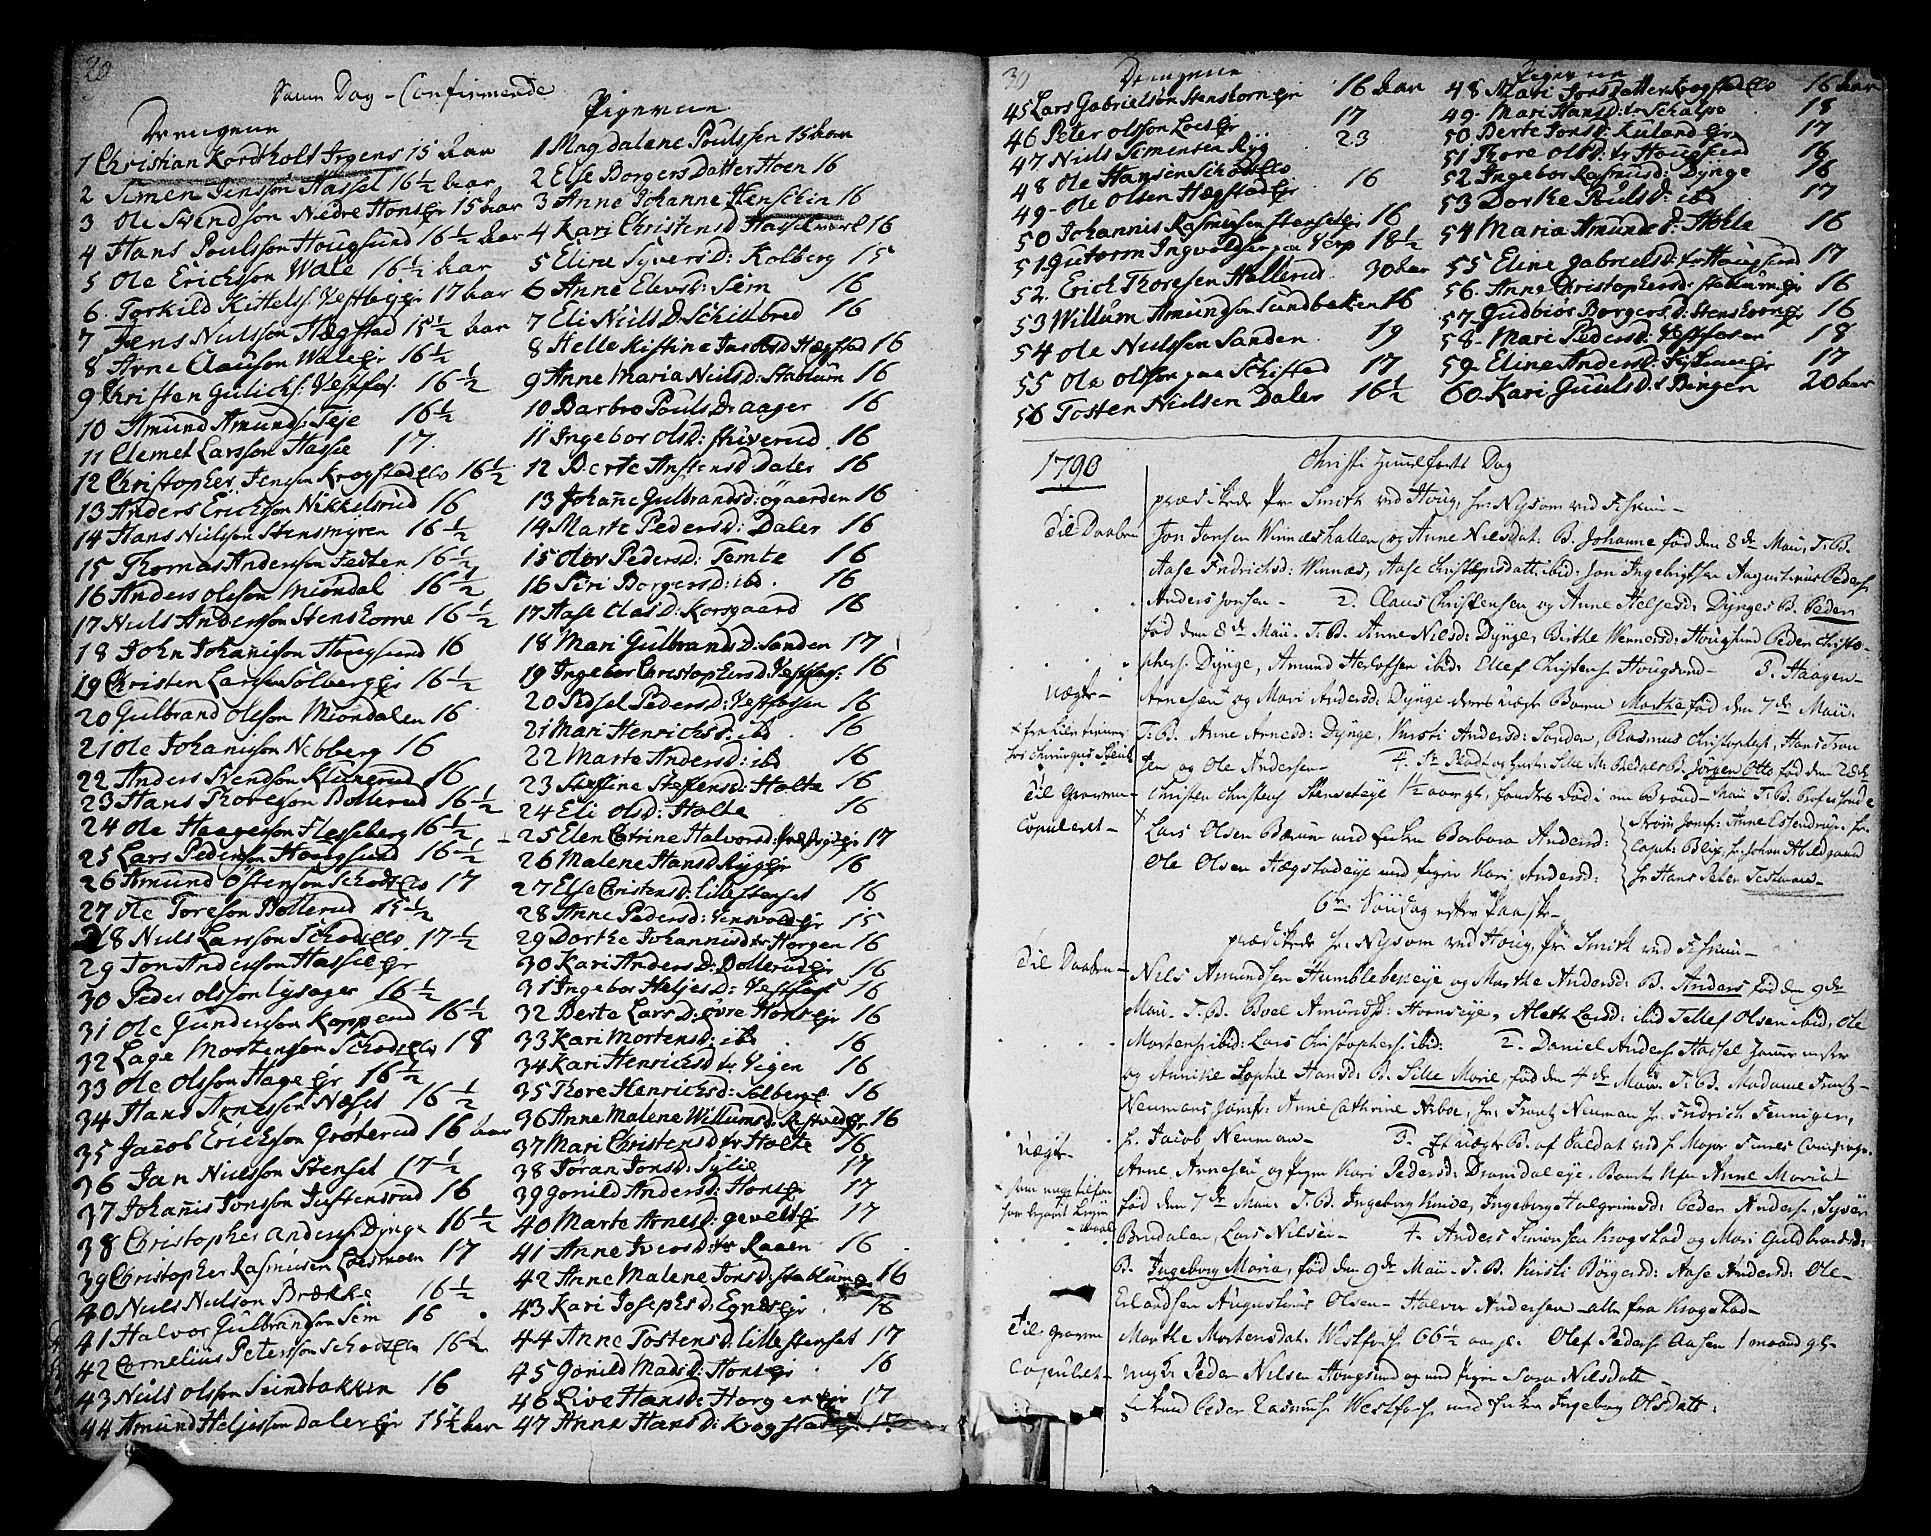 20
Samme Dag - Confirmerede
Drengene
1 Christian Kordtholt Irgens 15 Aar
2 Simen Jensson Hassel 16½ Aar
3 Ole Svendson Nedre Hons ejr 15 Aar
4 Hans Poulsson Hougsund 16½ Aar
5 Ole Erickson Wale 16½ Aar
6. Torkild Kittels: Vestbÿ ejr 17 Aar
7 Jens Nielsson Hægstad 15½ Aar
8 Arne Clauson Wale ejr 16½
9 Christen Gulichs: Vestfos: 16½
10 Amund Amunds: Teje 16½
11 Clemet Larsson Hassel 17.
12 Christopher Jensen Krogstadelv 16½
13 Anders Erickson Nikkelsrud 16
14 Hans Nielsson Stensmyren 16½
15 Thomas Anderssen Fedten 16½
16 Anders Olsson Miöndal 16½
17 Niels Andersson Stenskorne 16½
18 John Johanisson Hougsund 16
19 Christen Larsen Solberg ejr 16½
20 Gulbrand Olsson Miöndalen 16
21 Ole Johanisson Nebberg 16
22 Anders Svendson Stivrud 16
23 Hans Thoresson Bollerud 16½
24 Ole Haagesson Flesseberg 16½
25 Lars Pedersen Hougsund 16½
26 Amund Östenson Schodselv 17
27 Ole Toreson Bollerud 15½
28 Niels Larsson Schodselv. 17½
29 Jon Andersson Hassel ejr
30 Peder Olsson Lysager 16½
31 Ole Gundersson Kopperud 16½
32 Lage Mortensson Schodselv 18
33 Ole Olsson Hage ejr 16½
34 Hans Arnesson Næset 16½
35 Jacob Erickson Grösterud 16 Aar
36 Jan Nielsson Stenset 17½
37 Johanis Jonsson Justensrud 16
38 Christopher Anders: Dynge 16½
39 Christopher Rasmusen Loesmoen 17
40 Niels Nielson Brække 16½
41 Halvor Gulbrandson Sem 16
42 Cornelius Petersson Schodselv 16½
43 Niels Olsson Sundbakken 16
44 Amund Heljesson Daler ejr 15½ Aar
Pigerne
1 Magdalene Poulssen 15 Aar
2 Else Borgers Datter Hoen 16
3 Anne Johanne Henschin 16
4 Kari Christensd Hasselverk 16
5 Eline Syversd: Kolberg 15
6 Anne Elevsd: Sem 16
7 Eli Niels D. Schiibred 16
8 Helle Kistine Jacobsd Hægstad 16
9 Anne Maria Nielsd: Stablum 16
10 Barbro Pouls D. Aager 16
11 Ingebor Olsd: Stiverud. 16
12 Berte Anstensd Daler 16
13 Johanne Gulbrandsd: Øgaarden 16
14 Marte Pedersd: Daler 16
15 Olov Pedersd: Temte 16
16 Siri Borgersd: ibd. 16
17 Aase Clasd: Korsgaard 16
18 Mari Gulbrands D: Sanden 17
19 Ingebor Christophersd: Vestfos: 16
20 Sidsel Pedersd: Vestfossen 16
21 Mari Henrichsd: ibd 16
22 Marte Andersd: ibd 16
23 Steffine Steffensd: Holte 16
24 Eli Olsd: Holte 16
25 Elen Catrine Halvorsd: 17
26 Malene Hansd Ryg ejr 16
27 Else Christensd: Lille Stenset 16
28 Anne Pedersd: ejr 15
29 Dorthe Johannisdtr Horgen 16
30 Kari Anders D: Dollerud ejr 16
31 Ingebor Heljes D: Vestfoss 16
32 Berte Lars D: Øvre Hons ejr 16
33 Kari Mortensd: ibd 16
34 Kari Henricsdtr Vigen 16
35 Thore Henrichsd: Solberg e. 16
36 Anne Malene Willumsd: 16
37 Mari Christensdtr Holte 16
38 Jöran Jonsd: Sylie 17
39 Gonild Andersd: Hons ejr 17
40 Marte Arnesd: Gevelt ejr 17
41 Anne Iversd: Raaen 16
42 Anne Malene Jonsd: Stablum 16
43 Kari Josephsd: Egnes ejr 16
44 Anne Tostensd: Lille Stenset 17
45 Gonild Madsd: Hons ejr 16
46 Live Hansd: Horgen ejr 17
47 Anne Hansd: Krogstad ejr 17
30
Drengene
45 Lars Gabrielson Stenskorn ejr 16 Aar
46 Peter Olsson Loes ejr 17
47 Niels Simensen Ryg 23
48 Ole Hansen Schodselv
49. Ole Olsen Hægstad ejr 16
50 Johannis Rasmusen Stenset ejr 16
51 Gutorm Ingvoldsen paa Verp 18½
52. Erich Thoresen Hallerud. 30 Aar
53 Willum Amundson Sundbaken 16
54 Ole Nielssen Sanden. 19
55 Ole Olsson paa Schistad 17
56 Tosten Nielsen Daler 16½
Pigerne
48 Mari Jons Datter Krogstadelv 16 Aar
49. Mari Hansd: tr Schalsvo 18
50 Berte Jonsd: Ruland ejr 17
51 Thore Olsd: tr Hougsund 16
52. Ingebor Rasmusd: Dynge 16
53 Dorthe Poulsd: ibd 17
54 Maria Amundsd: Holte 16
55 Eline Gabrielsd: tr Hougsund 17
56. Anne Christophersd: Stablum ejr 16
57. Gudbiör Borgersd: Stenskorn ejr 16
58. Mari Pedersd: Vestfossen 18
59. Eline Andersd: Fiskum ejr 17
60. Kari Guulsd: Bingen 20 Aar
1790
Christi Himmelfarts Dag
prædikede Pr. Smith ved Houg, hr: Nysom ved Fiskum -
Til Daaben
Jon Jonsen Winnæshallen og Anne Nielsdat: B. Johanne fød den 8de Maii, T. B.
Aase Fridrichsd: Winnæs, Aase Christensdatt: ibid: Jon Ingebrigtsen Augustinus Peders:
Anders Jonsen - 2. Claus Christensen og Anne Helgesd: Dynges B. Peder
fød den 8de Maii. T. B. Anne Nielsd: Dynge, Birthe Wernersd: Hougsund Peder Christo-
phers: Dynge, Amund Herlofsen ibid: Ellef Christens: Hougsund - 3. Haagen
uægte -
Arnesen og Mari Andersd: Dynge deres uægte Barn Marthe fød den 7de Maii.
T. B. Anne Arnesd: Dynge, Kirsti Andersd: Sanden, Rasmus Christophers:, Hans Iver
sen og Ole Andersen - 4. Sr. Rode og hustr: Sille M: Bedals B. Jörgen Otto fød den 22de
Til Graven -
Christen Christens: Stensetejè 1½ aar gl:, fandtes død i en Brönd - Maii T. B.
Copuleret -
Lars Olsen Bærum med Enken Barbara Andersd:
Ole Olsen Hægstadeye med pigen Kari Andersd:
Ström Jomf: Anne Essendrup, hr.
Capt: Blix, hr Johan Abildgaard
hr Hans Peter
6te Söndag efter Paaske -
prædikede hr: Nysom ved Houg, Pr. Smith ved Fiskum -
Til Daaben -
Niels Amundsen Humblebekeye og Marthe Andersd: B. Anders, fød den 9de
Maii. T. B. Boel Amundsd: Hornseye, Aleth Larsd: ibid Tellef Olsen ibid, Ole
Mortens: ibid: Lars Christophers: ibid: 2. Daniel Anders: Hassel
og Annike Sophie Hansd: B. Sille Marie, fød den 4de Maii. T. B. Madame Frantz
Neumans Jomf: Anne Cathrine Arboe, hr: Frantz Neuman hr. Fridrich Fenniger,
hr. Jacob Neuman - 3. Et uægte B. af Soldat ved hr Major Compagn:
uægte
Arne Arnesen og Pigen Kari Pedersd: Dramdaleye, Barnets Nafn Anne Maria
fød den 7de Maii. T. B. Ingeborg Knudsd, Ingeborg Halgrimsd: Peder Anders:, Syver
Brudalen, Lars Nilsen - 4. Anders Simonsen Krogstad og Mari Guldbrandsd:
B. Ingeborg Maria, fød den 9de Maii - T. B. Kirsti Börgersd: Aase Andersd: Ole
Erlandsen Augustinus Olsen - Halvor Andersen - alle fra Krogstad -
Til Graven
Marthe Mortensdat: Westfoss: 66½ aar gl: Olef Peders: Aasen 1 maaned gl -
Copuleret -
ungk: Peder Nilsen Hougsund og med pigen Sara Nilsdatt -
Enkem: Peder Rasmus: Westfoss: med Enken Ingeborg Olsdatt: